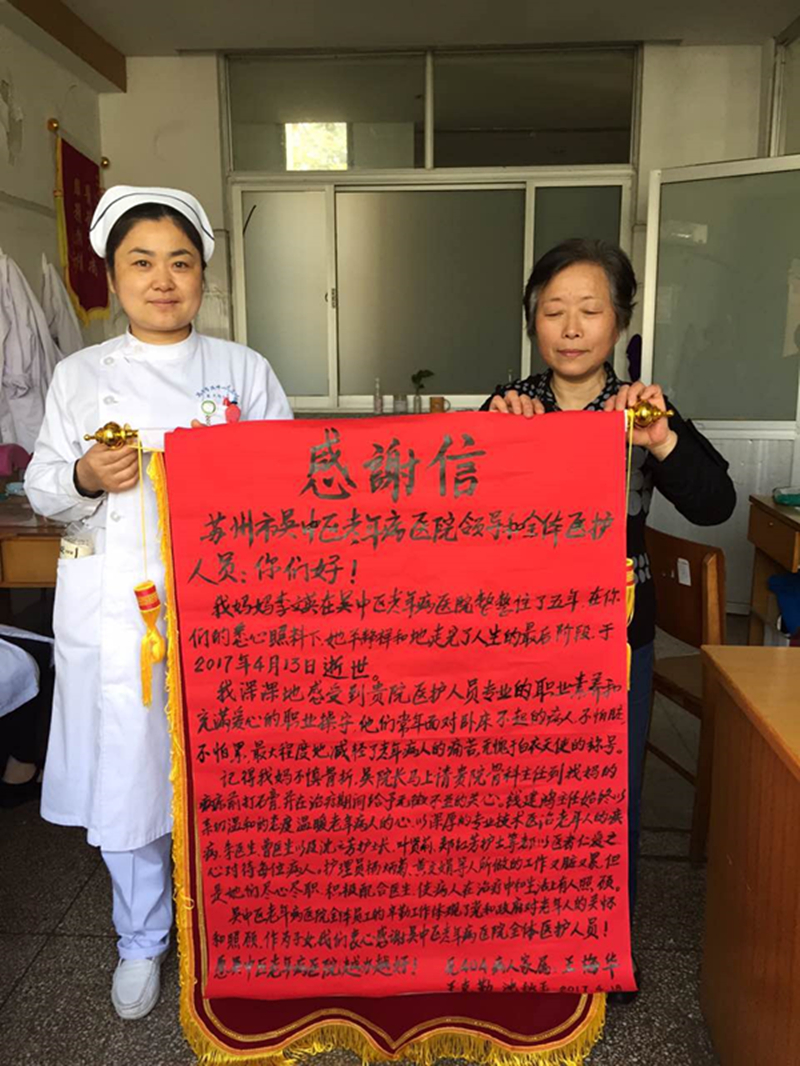 感謝信
苏州市吴中区老年病医院领导和全体医护
人员：你们好！
我妈妈李文英在吴中区老年病医院整整住了五年，在你
们的悉心照料下，她平静祥和地走完了人生的最后阶段，于
2017年4月13日逝世。
我深深地感受到贵院医护人员专业的职业素养和
充满爱心的职业操守，他们常年面对卧床不起的病人，不怕脏
不怕累，最大程度地减轻了老年病人的痛苦，无愧于白衣天使的称号。
记得我妈不慎骨折，吴院长马上请贵院骨科主任到我妈的
病床前打石膏，并在治疗期间给予无微不至的关心。钱建鸿主任始终以
亲切温和的态度温暖老年病人的心，以深厚的专业技术医治老年人的疾
病，李医生，曹医生以及沈 芳护士长，叶贤前，郑红芳护士等都以医者仁爱之
心对待每位病人。护理员杨 菊，黄文娟等人所做的工作又脏又累，但
是她们尽心尽职，积极配合医生，使病人在治疗中和生活上有人照顾。
吴中区老年病医院全体员工的辛勤工作体现了党和政府对老年人的关怀
和照顾，作为子女，我们衷心感谢吴中区老年病医院全体医护人员！
愿吴中区老年病医院越办越好！ 见404病人家属：王梅华
2017.4.18